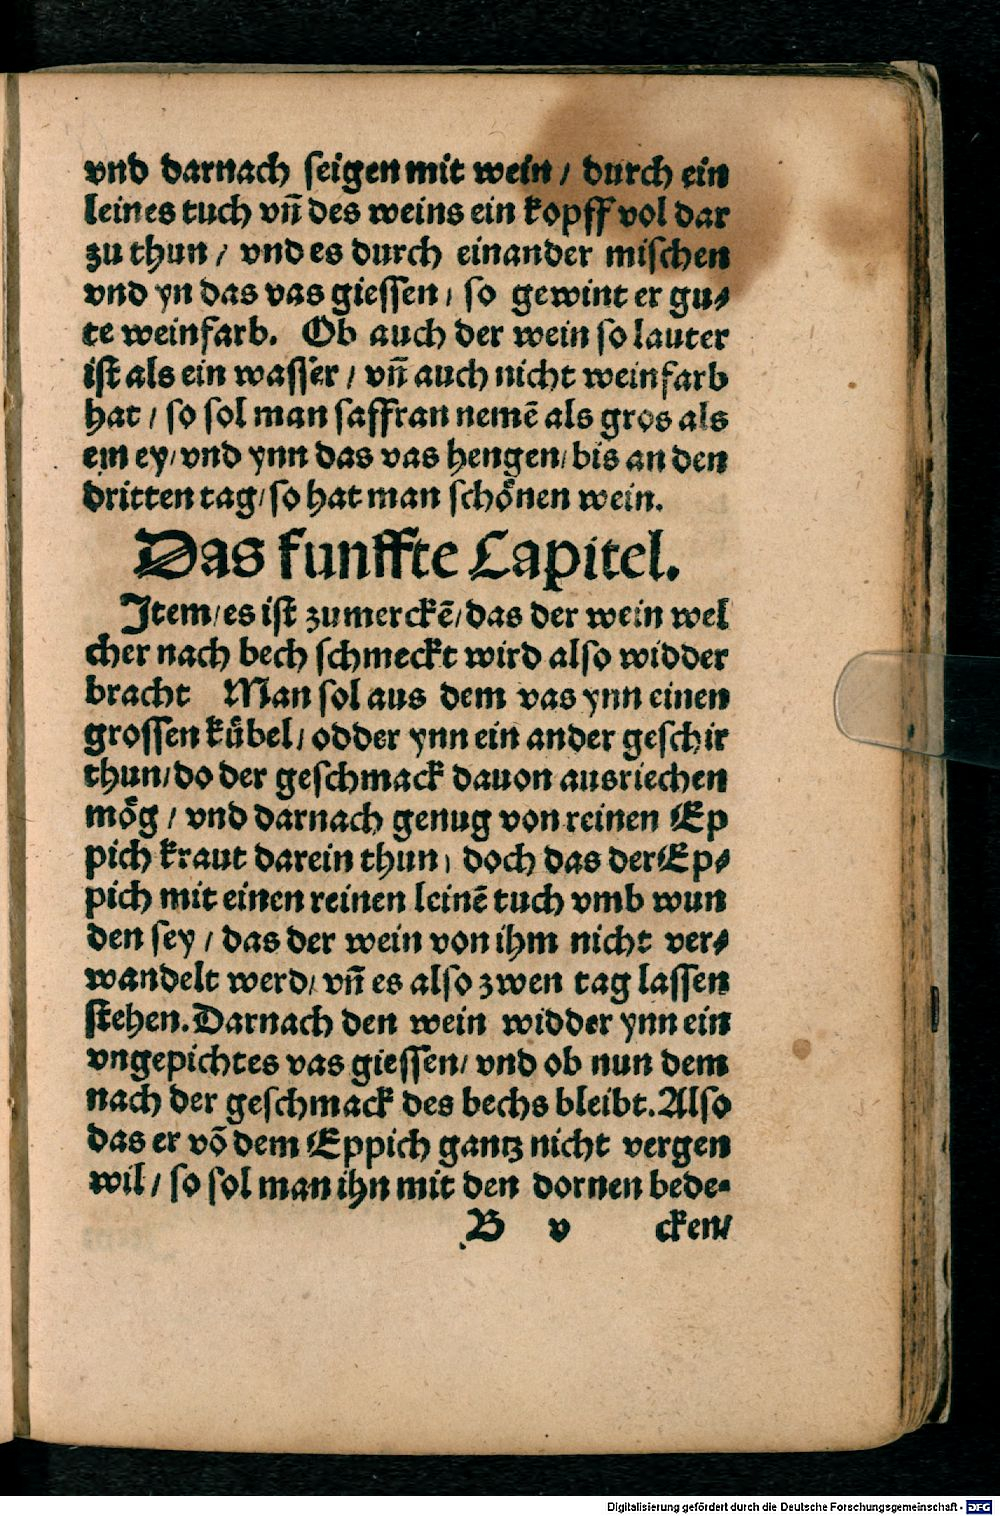 vnd darnach seigen mit wein / durch ein
leines tuch vñ des weins ein kopff vol dar
zu thun / vnd es durch einander mischen
vnd yn das vas giessen / so gewint er gu⸗
te weinfarb. Ob auch der wein so lauter
ist als ein wasser / vñ auch nicht weinfarb
hat / so sol man saffran nemē als gros als
ein ey / vnd ynn das vas hengen / bis an den
dritten tag / so hat man schönen wein.
Das funffte Capitel.
Item / es ist zumerckē / das der wein wel
cher nach bech schmeckt wird also widder
bracht Man sol aus dem vas ynn einen
grossen kübel / odder ynn ein ander geschir
thun / do der geschmack dauon ausriechen
mög / vnd darnach genug von reinen Ep
pich kraut darein thun / doch das der Ep⸗
pich mit einen reinen leinē tuch vmb wun
den sey / das der wein von ihm nicht ver⸗
wandelt werd / vñ es also zwen tag lassen
stehen. Darnach den wein widder ynn ein
vngepichtes vas giessen / vnd ob nun dem
nach der geschmack des bechs bleibt. Also
das er vō dem Eppich gantz nicht vergen
wil / so sol man ihn mit den dornen bede⸗
B v cken /
Digitalisierung gefördert durch die Deutsche Forschungsgemeinschaft - DFG